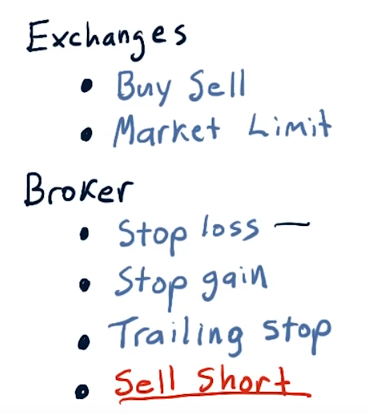 Exchanges
• Buy Sell
• Market Limit
Broker
• Stop loss —
• Stop gain
• Trailing stop
• Sell Short